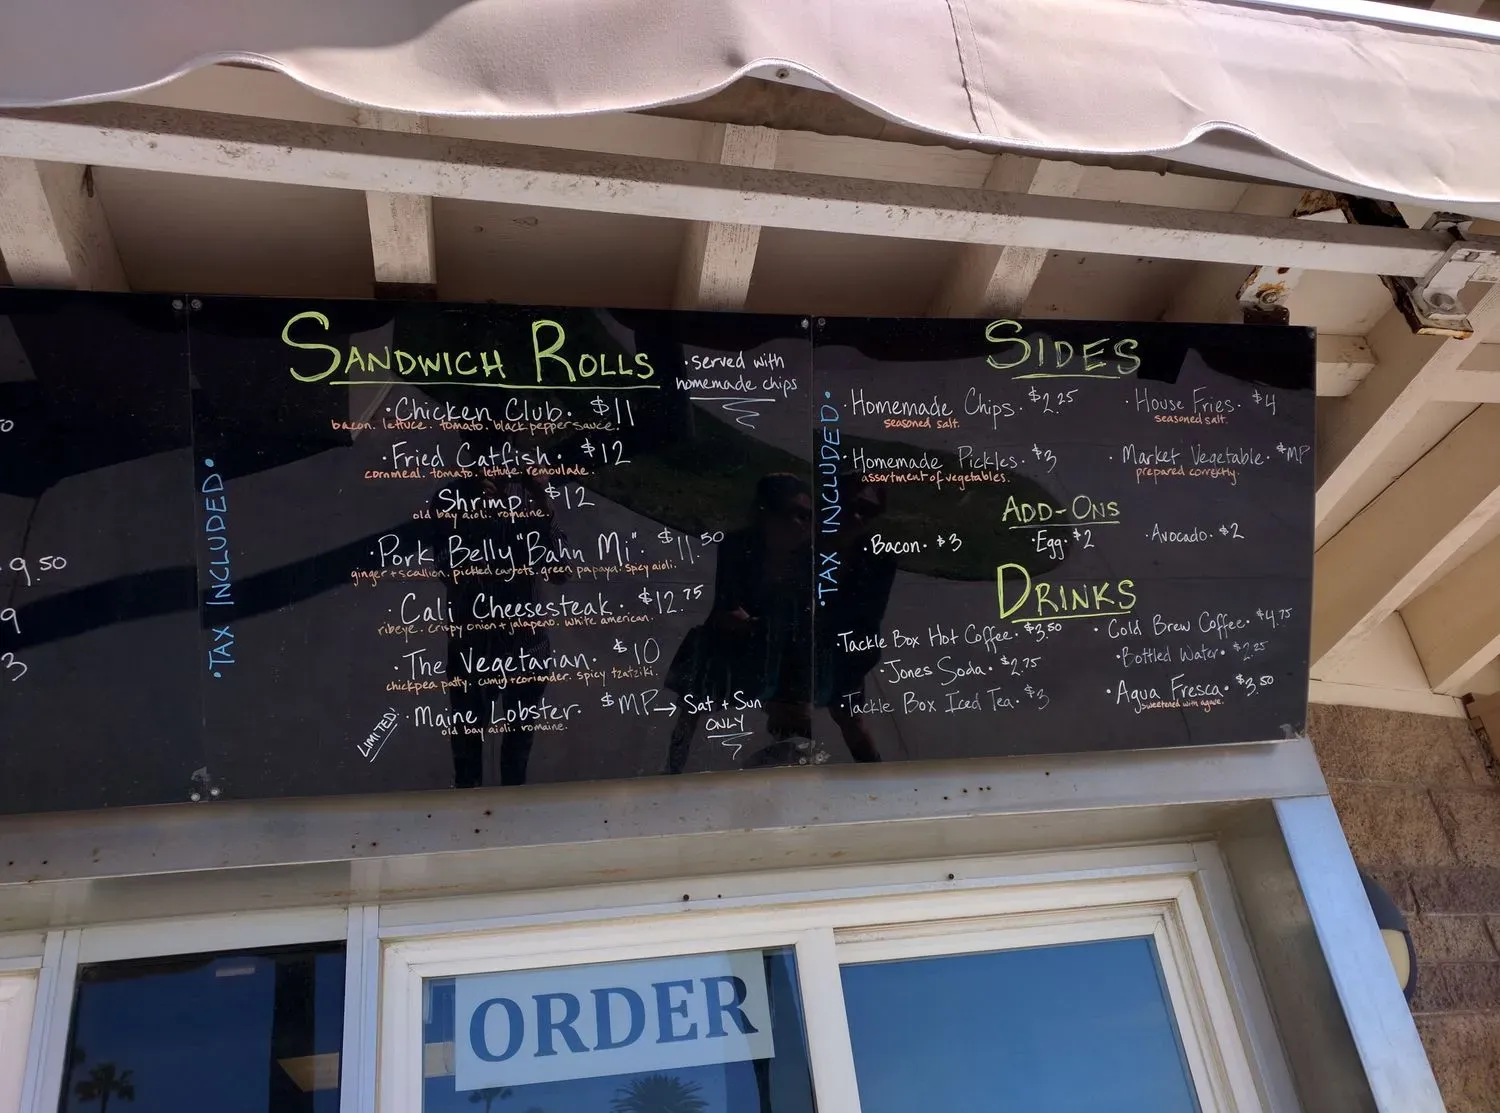 9.50
9
3
TAX INCLUDED
SANDWICH ROLLS
· served with
homemade chips
· Chicken Club · $11
bacon. lettuce. tomato. black pepper sauce.
· Fried Catfish · $12
cornmeal. tomato. lettuce. remoulade.
Shrimp · $12
old bay aioli. romaine.
· Pork Belly "Bahn Mi" · $11.50
ginger + scallion. pickled carrots. green papaya. spicy aioli.
· Cali Cheesesteak · $12.75
ribeye. crispy onion + jalapeno. white american.
· The Vegetarian · $10
chickpea patty. cumin + coriander. spicy tzatziki.
LIMITED!
· Maine Lobster · $MP → Sat + Sun
ONLY
old bay aioli. romaine.
· TAX INCLUDED ·
SIDES
· Homemade Chips · $2.25
seasoned salt.
· House Fries · $4
seasoned salt.
· Homemade Pickles · $3
assortment of vegetables.
· Market Vegetable · $MP
prepared correctly.
ADD-ONS
· Bacon · $3
· Egg · $2
· Avocado · $2
DRINKS
· Tackle Box Hot Coffee · $3.50
· Cold Brew Coffee · $4.75
· Jones Soda · $2.75
· Bottled Water · $2.25
· Tackle Box Iced Tea · $3
· Agua Fresca · $3.50
sweetened with agave.
ORDER